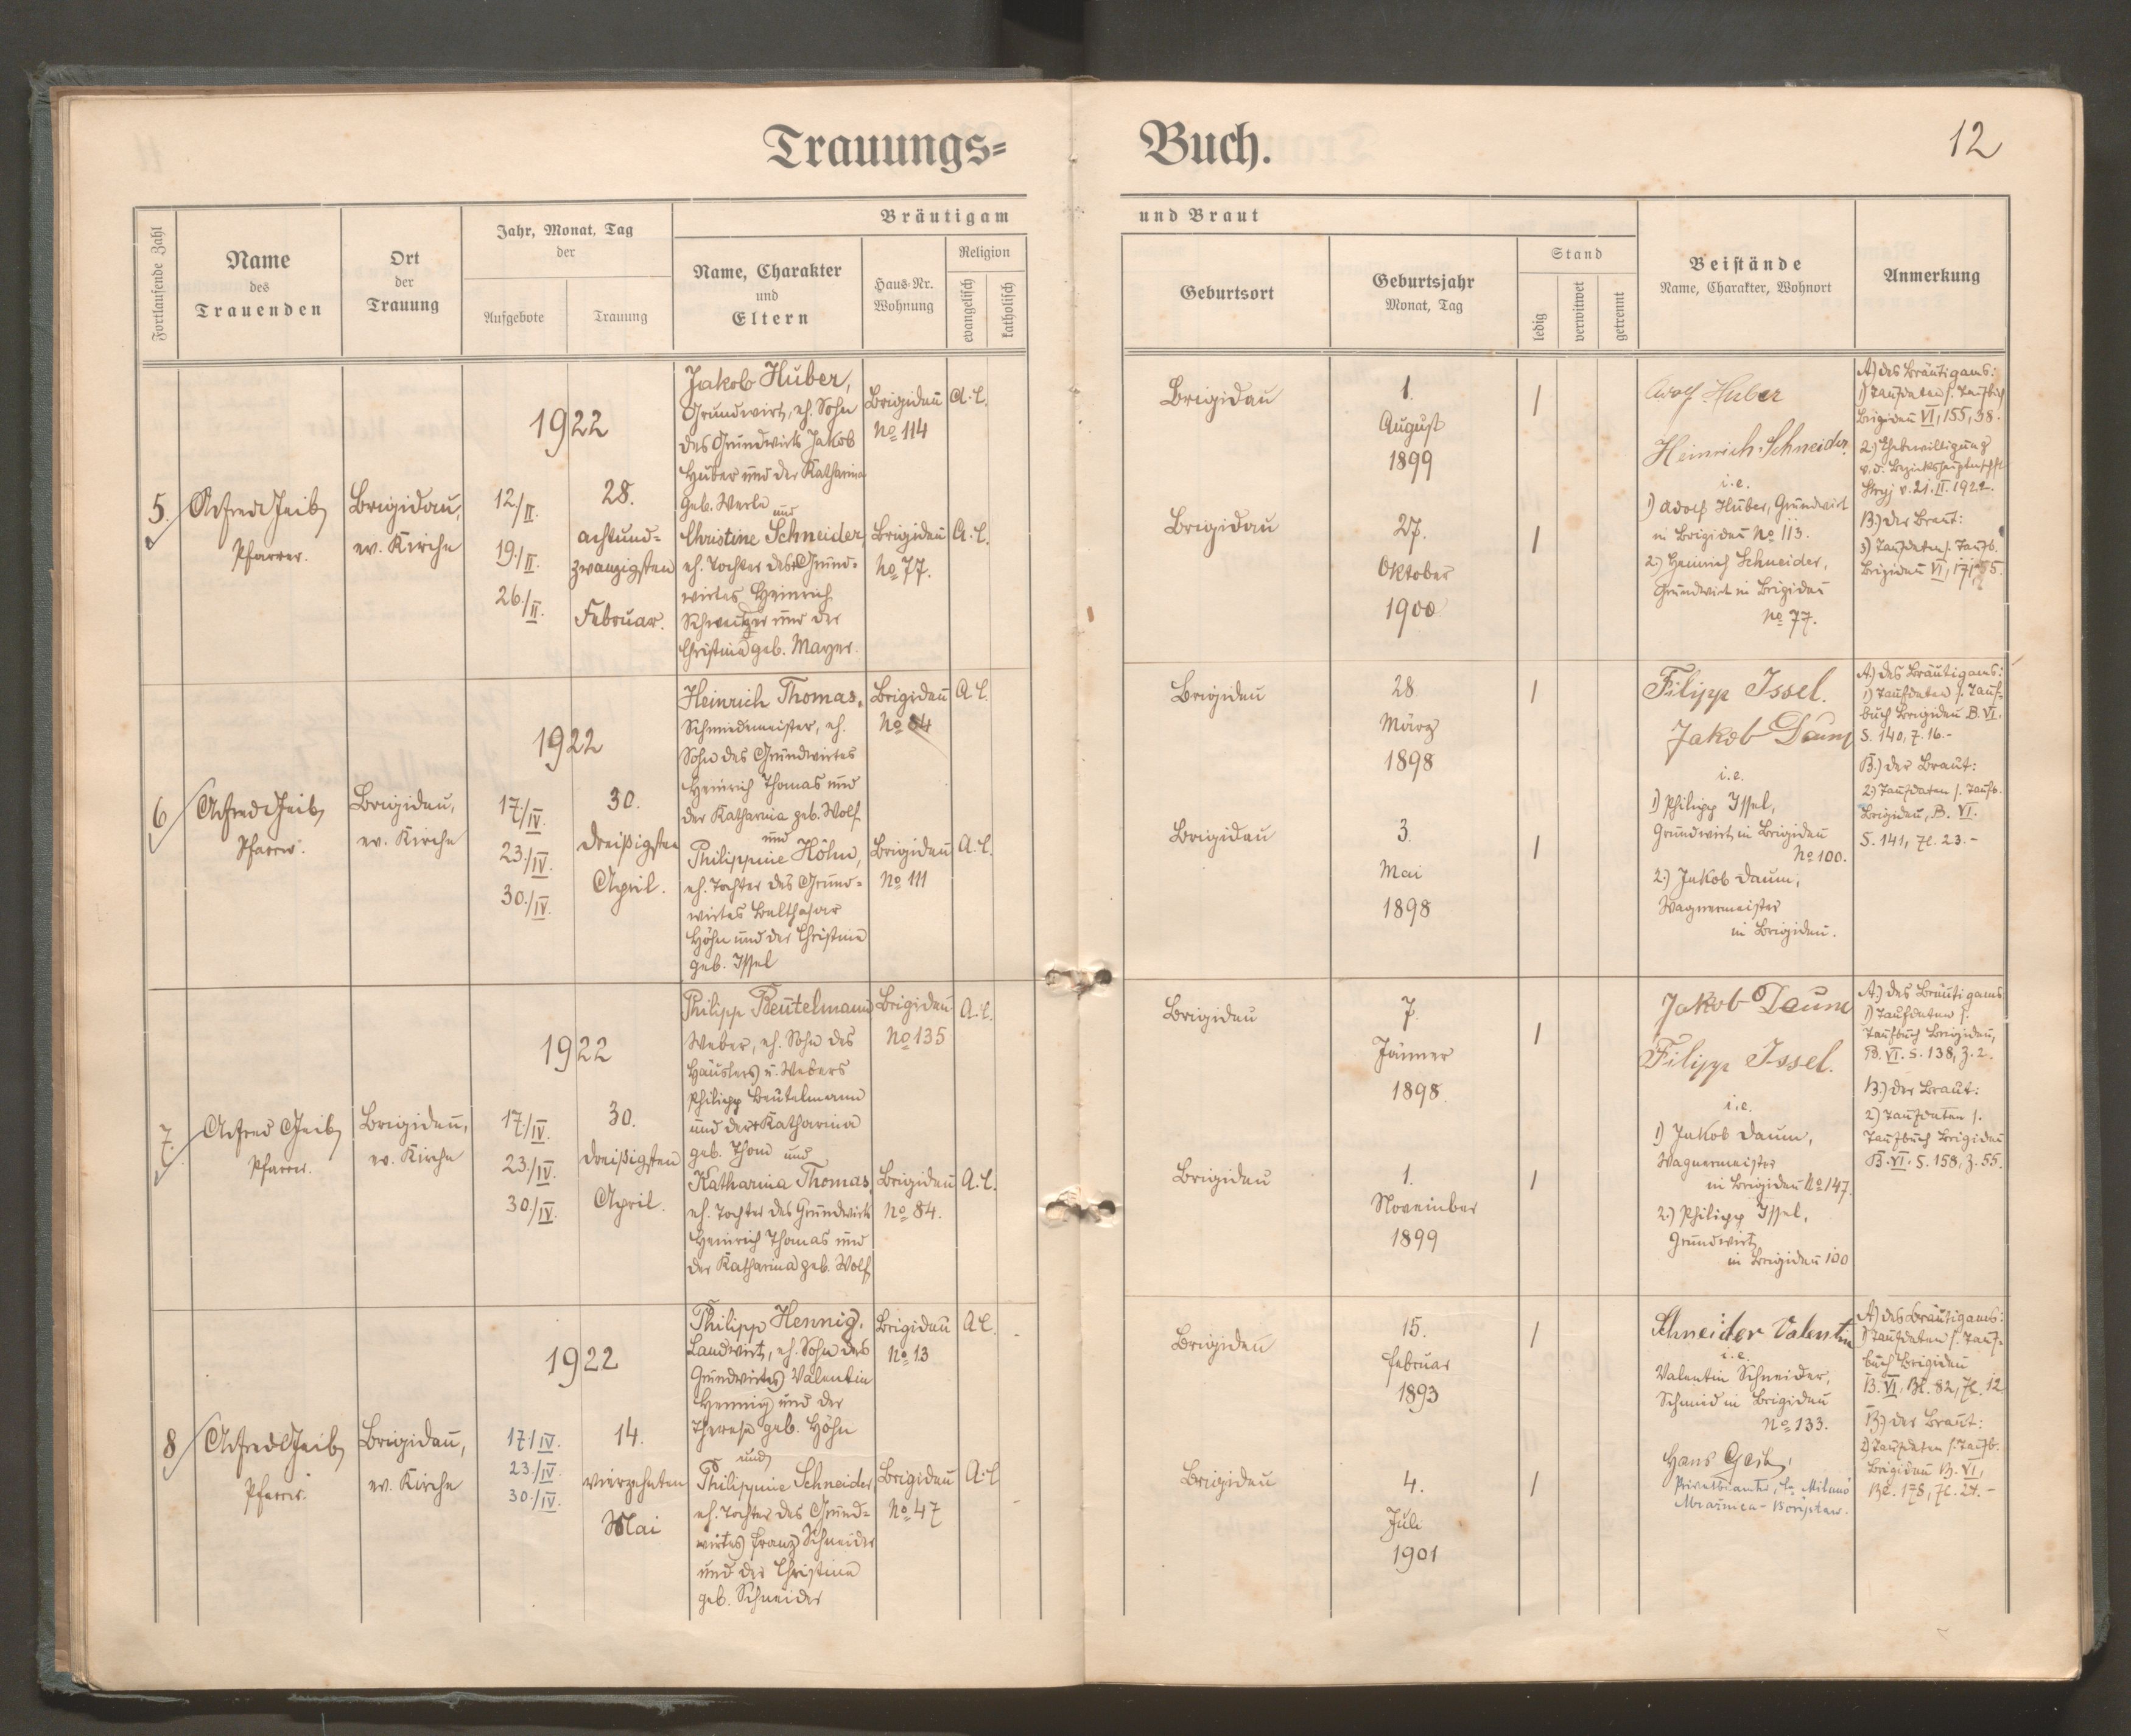 Trauungs=
Buch.
12
Fortlaufende Zahl
Name
des
Trauenden
Ort
der
Trauung
Jahr, Monat, Tag
der
Aufgebote
Trauung
Bräutigam
Name, Charakter
und
Eltern
Haus-Nr.
Wohnung
Religion
evangelisch
katholisch
und Braut
Geburtsort
Geburtsjahr
Monat, Tag
Stand
ledig
verwitwet
getrennt
Beistände
Name, Charakter, Wohnort
Anmerkung
5.
Alfred Geib,
Pfarrer.
Brigidau,
ev. Kirche
1922
12./II.
19./II.
26./II.
28.
achtund=
zwanzigsten
Februar.
Jakob Huber,
Grundwirt, eh. Sohn
des Grundwirts Jakob
Huber und der Katharina
geb. Werle
und
Christine Schneider,
eh. Tochter des Grund=
wirtes Heinrich
und der
Christina geb. Mayer.
Brigidau
No 114
A. C.
Brigidau
No 77.
A. C.
Brigidau
1.
August
1899
Brigidau
27.
Oktober
1900
Adolf Huber
Heinrich Schneider
i. e.
1) Adolf Huber, Grundwirt
in Brigidau No 113.
2.) Heinrich Schneider,
Grundwirt in Brigidau
No 77.
A) des Bräutigams:
1) Taufdaten s. Taufbuch
Brigidau VI, 155, 38.
2.) Ehebewilligung
v. d. Bezirkshauptmschft
Stryj v. 21. II. 1922.
B.) der Braut:
3) Taufdaten s. Taufb.
Brigidau VI, 171, 55.
6
Alfred Geib,
Pfarrer.
Brigidau,
ev. Kirche
1922
17./IV.
23./IV.
30./IV.
30.
dreißigsten
April.
Heinrich Thomas,
Schmiedemeister, eh.
Sohn des Grundwirtes
Heinrich Thomas und
der Katharina geb. Wolf
und
Philippine Höhn,
eh. Tochter des Grund=
wirtes Balthasar
Höhn und der Christine
geb. Issel
Brigidau
No 84
A. C.
Brigidau
No 111
A. C.
Brigidau
28
März
1898
Brigidau
3.
Mai
1898
Filipp Issel.
Jakob Daum
i. e.
1) Philipp Issel,
Grundwirt in Brigidau
No 100.
2.) Jakob Daum,
Wagnermeister
in Brigidau.
A.) des Bräutigams:
1) Taufdaten s. Tauf=
buch Brigidau B. VI.
S. 140, Z. 16.-
B.) der Braut:
2.) Taufdaten s. Taufb.
Brigidau, B. VI.
S. 141, Zl. 23.-
7.
Alfred Geib,
Pfarrer.
Brigidau,
ev. Kirche
1922
17./IV.
23./IV.
30./IV.
30.
dreißigsten
April.
Philipp Beutelmann
Weber, eh. Sohn des
Häuslers u. Webers
Philipp Beutelmann
und der Katharina
geb. Thom und
Katharina Thomas,
eh. Tochter des Grundwirts
Heinrich Thomas und
der Katharina geb. Wolf
Brigidau
No 135
A. C.
Brigidau
No 84.
A. C.
Brigidau
7.
Jänner
1898.
Brigidau
1.
November
1899
Jakob Daum
Filipp Issel.
i. e.
1) Jakob Daum,
Wagnermeister
in Brigidau No 147.
2.) Philipp Issel,
Grundwirt
in Brigidau 100
A.) des Bräutigams
1) Taufdaten s.
Taufbuch Brigidau,
B. VI. S. 138, Z. 2.
B.) der Braut:
2) Taufdaten s.
Taufbuch Brigidau
B. VI. S. 158, Z. 55.
8
Alfred Geib,
Pfarrer.
Brigidau,
ev. Kirche
1922
17./IV.
23./IV.
30./IV.
14.
vierzehnten
Mai
Philipp Hennig,
Landwirt, eh. Sohn des
Grundwirtes Valentin
Hennig und der
Theresa geb. Höhn
und
Philippine Schneider
eh. Tochter des Grund=
wirtes Franz Schneider
und der Christina
geb. Schneider
Brigidau
No 13
A. C.
Brigidau
No 47
A. C.
Brigidau
15.
Februar
1893
Brigidau
4.
Juli
1901
Schneider Valentin
i. e.
Valentin Schneider,
Schmied in Brigidau
No 133.
Hans Geib,
A) des Bräutigams:
1) Taufdaten s. Tauf=
buch Brigidau
B. VI, Bl. 82, Zl. 12.
B.) der Braut:
2) Taufdaten s. Taufb.
Brigidau B. VI,
Bl. 178, Zl. 24.-